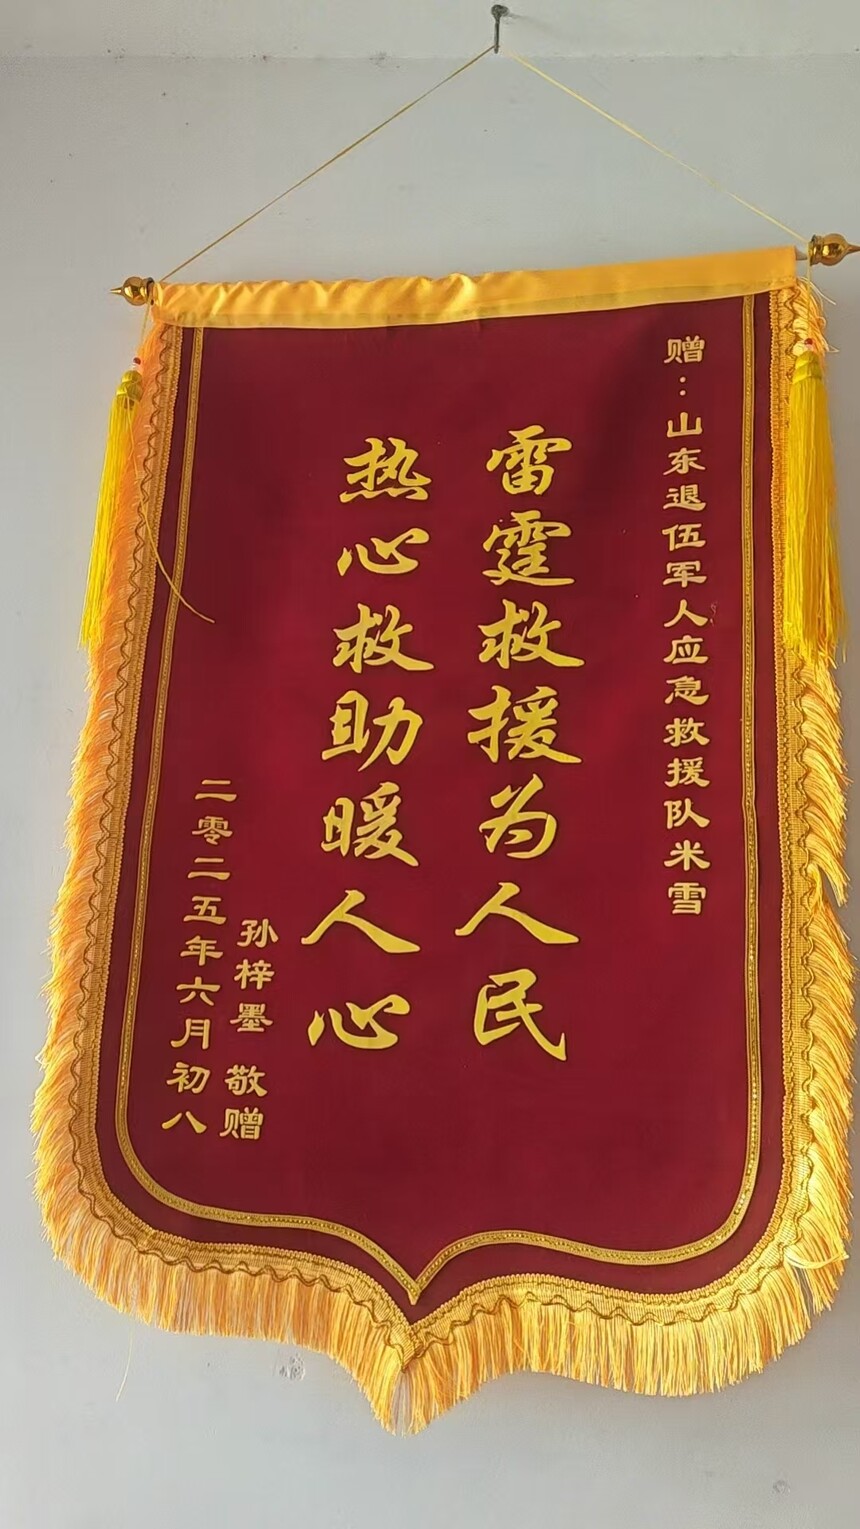 赠：山东退伍军人应急救援队米雪
雷霆救援为人民
热心救助暖人心
孙梓墨 敬赠
二零二五年六月初八